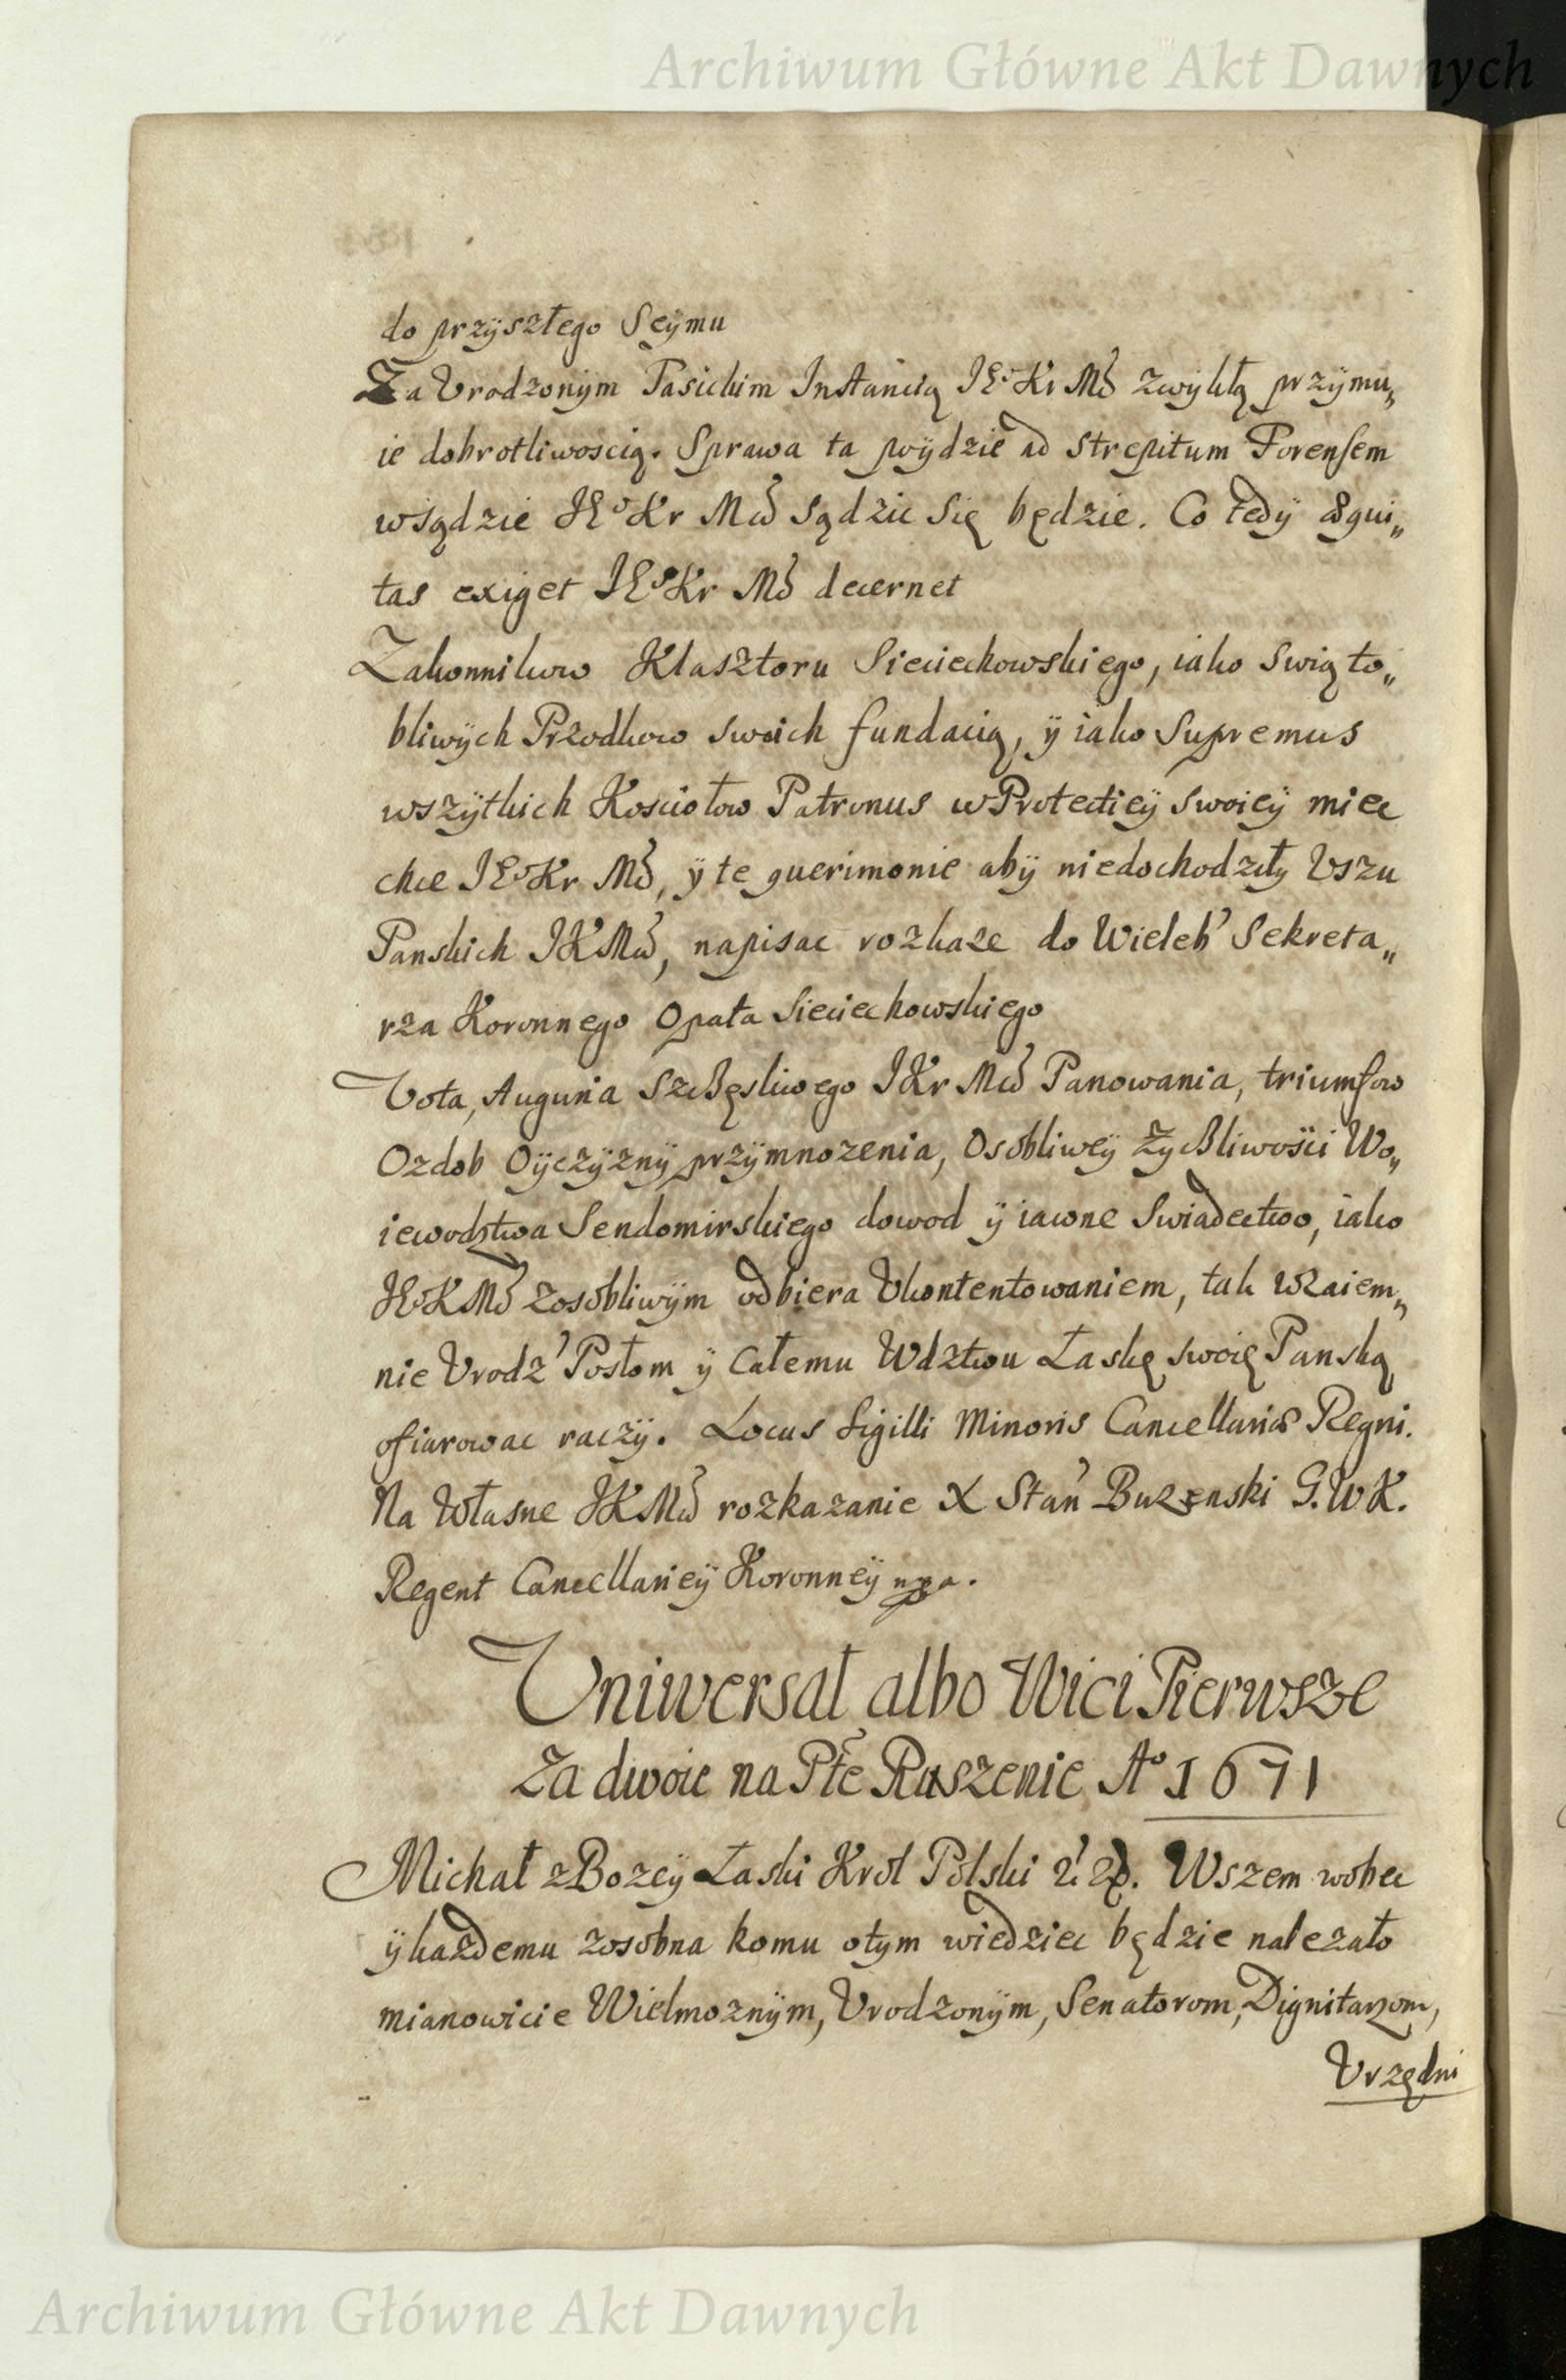 Archiwum Główne Akt Dawnych
do przÿszłego Seÿmu
Za Vrodzonÿm Pasickim Instancią JE° Kr Mć zwÿkłą przÿmu„
ie dobrotliwoscią. Sprawa ta poÿdzie ad strepitum Forensem
wsądzie JE° Kr Mći sądzic się będzie. Co tedÿ æqui„
tas exiget JE° Kr Mć decernet
Zakonnikow Klasztoru Sieciechowskiego, iako swiąto„
bliwÿch Przodkow swoich fundacią, ÿ iako Supremus
wszÿtkich Kosciołow Patronus w Protectieÿ swoieÿ miec
chce JE° Kr Mć, ÿ te querimonie abÿ niedochodziły Vszu
Panskich JKMći, napisac rozkaze do Wieleb' Sekreta„
rza Koronnego Opata Sieciechowskiego
Vota, Auguria Szczęsliwego JKr Mći Panowania, triumfow
Ozdob Oÿczÿznÿ przÿmnozenia, Osobliweÿ Zyczliwosci Wo„
iewodztwa Sendomirskiego dowod ÿ iawne Swiadectwo, iako
JE°KMć zosobliwÿm odbiera Vkontentowaniem, tak wzaiem„
nie Vrodz' Posłom ÿ Całemu Wdztwu Łaskę swoię Panską
ofiarowac raczÿ. Locus Sigilli Minoris Cancellariæ Regni.
Na Własne JKMći rozkazanie X Stan' Buzenski G.W.K.
Regent Cancellarieÿ Koronneÿ mpa.
Vniwersał albo Wici Pierwsze
Za dwoie na Płe Ruszenie A° 1671
Michał z Bozeÿ Łaski Krol Polski &c &c. Wszem wobec
ÿ kazdemu zosobna komu otym wiedziec będzie nalezało
mianowicie Wielmoznÿm, Vrodzonÿm, Senatorom, Dignitarzom,
Vrzędni
Archiwum Główne Akt Dawnych